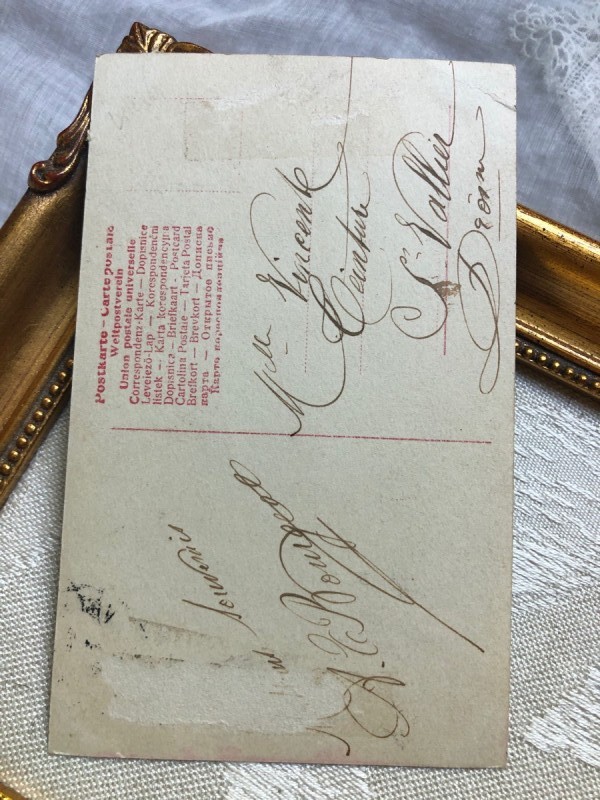 Postkarte – Carte postale
Weltpostverein
Union postale universelle
Correspondenz-Karte — Dopisnice
Levelező-Lap — Korespondenční
lístek — Karta korespondencyjna
Dopisnica — Briefkaart - Postcard
Cartolina Postale — Tarjeta Postal
Brefkort — Brevkort — Дописна
карта — Открытое письмо
Mlle Vincent
Ceinture
St Vallier
Drôme
souvenir